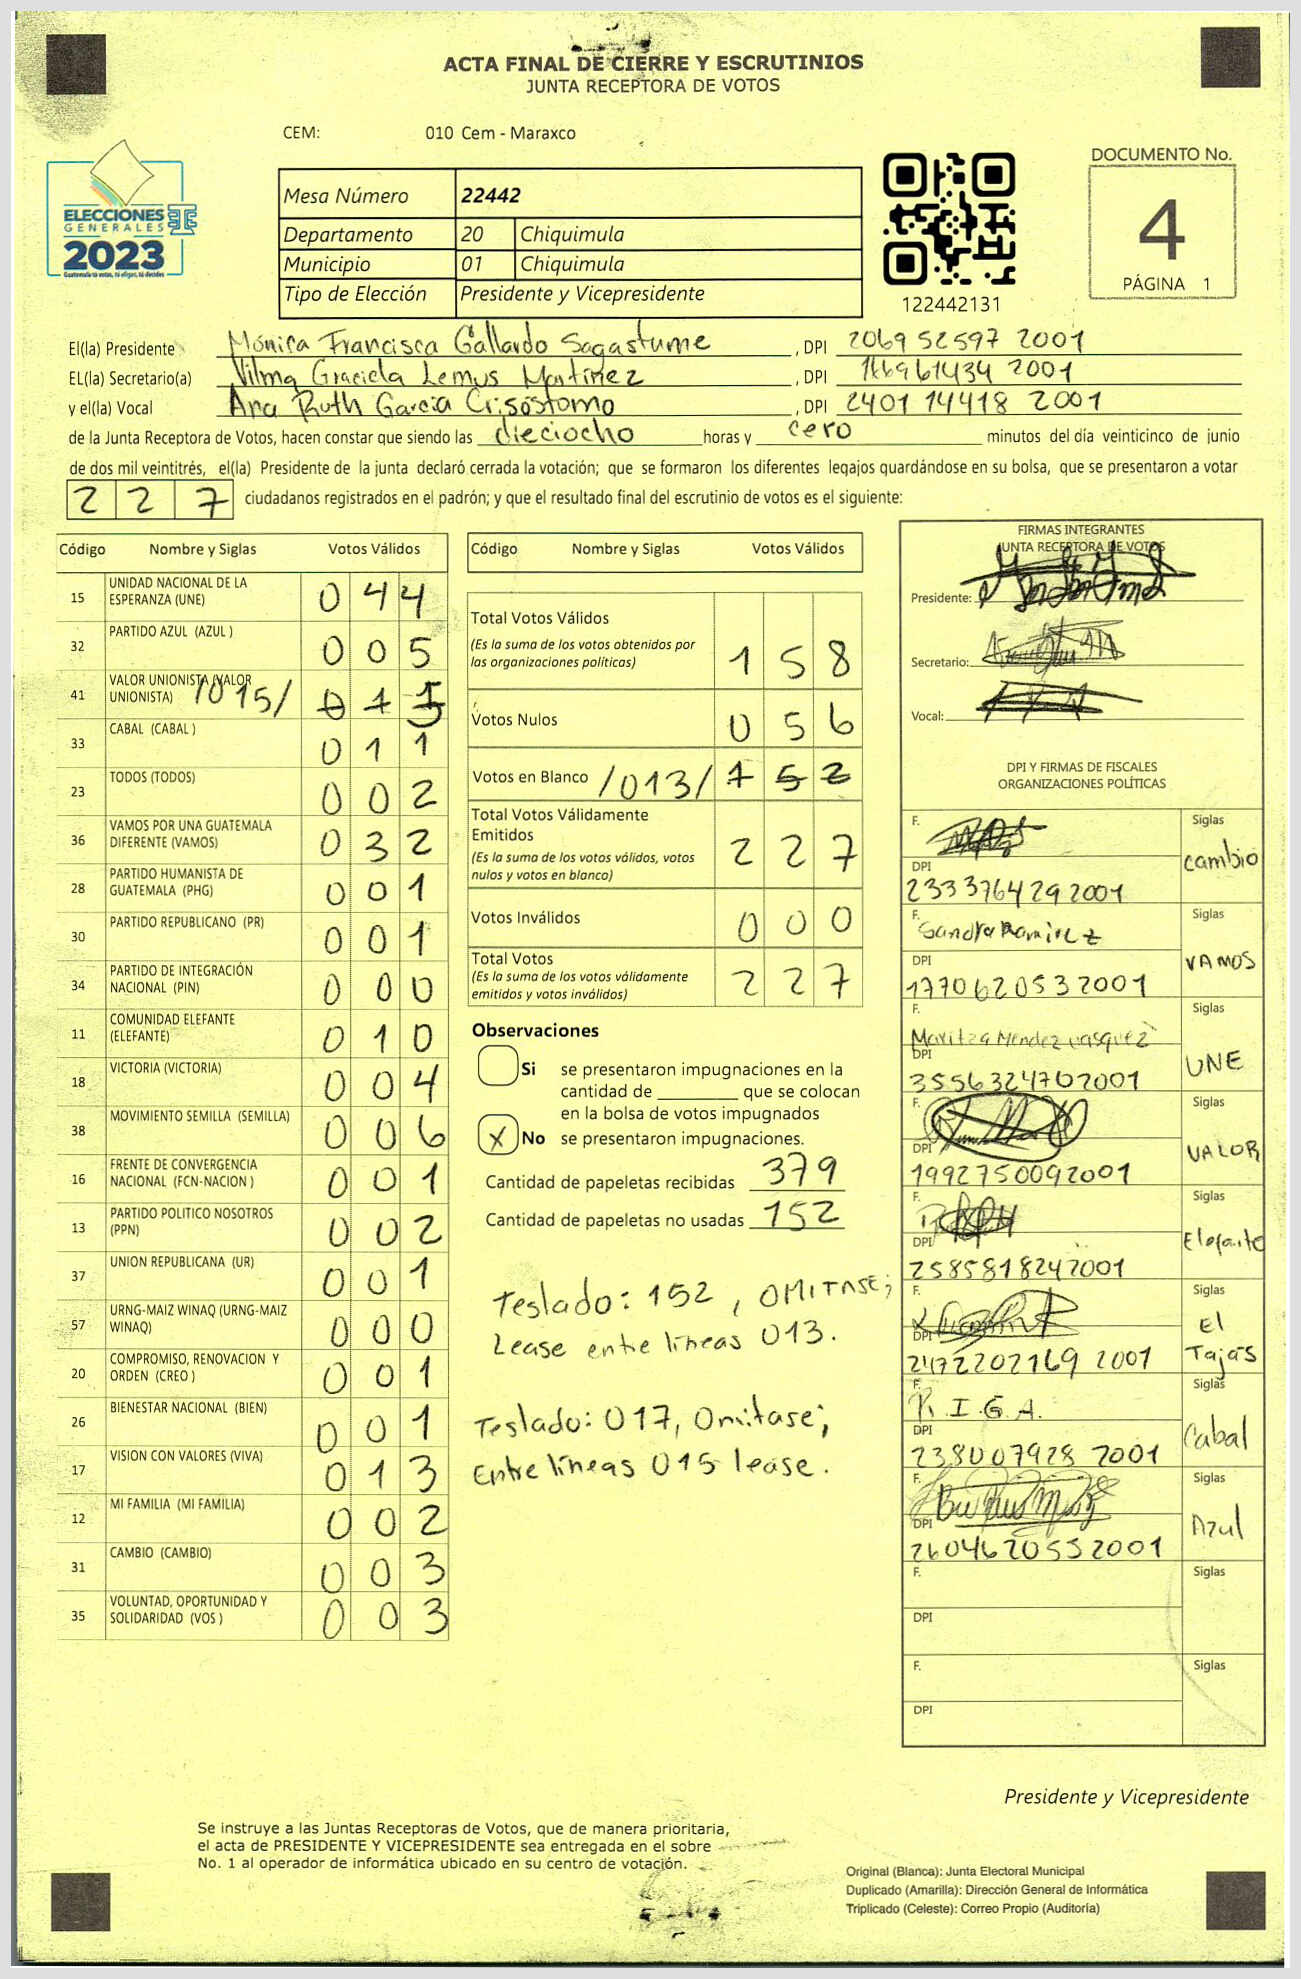 ACTA FINAL DE CIERRE Y ESCRUTINIOS
JUNTA RECEPTORA DE VOTOS
CEM: 010 Cem - Maraxco
ELECCIONES
GENERALES
2023
Guatemala tú votas, tú eliges, tú decides
Mesa Número 22442
Departamento 20 Chiquimula
Municipio 01 Chiquimula
Tipo de Elección Presidente y Vicepresidente
122442131
DOCUMENTO No.
4
PÁGINA 1
El(la) Presidente Mónica Francisca Gallardo Sagastume , DPI 2069 52597 2001
EL(la) Secretario(a) Vilma Graciela Lemus Martínez , DPI 2001
y el(la) Vocal Ana Ruth Garcia Crisóstomo , DPI 2401 14418 2001
de la Junta Receptora de Votos, hacen constar que siendo las dieciocho horas y cero minutos del día veinticinco de junio
de dos mil veintitrés, el(la) Presidente de la junta declaró cerrada la votación; que se formaron los diferentes legajos quardándose en su bolsa, que se presentaron a votar
2 2 7 ciudadanos registrados en el padrón; y que el resultado final del escrutinio de votos es el siguiente:
Código Nombre y Siglas Votos Válidos
15 UNIDAD NACIONAL DE LA ESPERANZA (UNE) 0 4 4
32 PARTIDO AZUL (AZUL ) 0 0 5
41 VALOR UNIONISTA (VALOR UNIONISTA) /015/
33 CABAL (CABAL ) 0 1 1
23 TODOS (TODOS) 0 0 2
36 VAMOS POR UNA GUATEMALA DIFERENTE (VAMOS) 0 3 2
28 PARTIDO HUMANISTA DE GUATEMALA (PHG) 0 0 1
30 PARTIDO REPUBLICANO (PR) 0 0 1
34 PARTIDO DE INTEGRACIÓN NACIONAL (PIN) 0 0 0
11 COMUNIDAD ELEFANTE (ELEFANTE) 0 1 0
18 VICTORIA (VICTORIA) 0 0 4
38 MOVIMIENTO SEMILLA (SEMILLA) 0 0 6
16 FRENTE DE CONVERGENCIA NACIONAL (FCN-NACION ) 0 0 1
13 PARTIDO POLITICO NOSOTROS (PPN) 0 0 2
37 UNION REPUBLICANA (UR) 0 0 1
57 URNG-MAIZ WINAQ (URNG-MAIZ WINAQ) 0 0 0
20 COMPROMISO, RENOVACION Y ORDEN (CREO ) 0 0 1
26 BIENESTAR NACIONAL (BIEN) 0 0 1
17 VISION CON VALORES (VIVA) 0 1 3
12 MI FAMILIA (MI FAMILIA) 0 0 2
31 CAMBIO (CAMBIO) 0 0 3
35 VOLUNTAD, OPORTUNIDAD Y SOLIDARIDAD (VOS ) 0 0 3
Código Nombre y Siglas Votos Válidos
Total Votos Válidos 1 5 8
(Es la suma de los votos obtenidos por
las organizaciones políticas)
Votos Nulos 0 5 6
Votos en Blanco /013/ 1 5 2
Total Votos Válidamente
Emitidos 2 2 7
(Es la suma de los votos válidos, votos
nulos y votos en blanco)
Votos Inválidos 0 0 0
Total Votos 2 2 7
(Es la suma de los votos válidamente
emitidos y votos inválidos)
Observaciones
Si se presentaron impugnaciones en la
cantidad de ________ que se colocan
en la bolsa de votos impugnados
X No se presentaron impugnaciones.
Cantidad de papeletas recibidas 379
Cantidad de papeletas no usadas 152
Testado: 152 , OMITASE;
Lease entre líneas 013.
Testado: 017, Omitase;
Entre líneas 015 lease.
FIRMAS INTEGRANTES
JUNTA RECEPTORA DE VOTOS
Presidente:
Secretario:
Vocal:
DPI Y FIRMAS DE FISCALES
ORGANIZACIONES POLÍTICAS
F. Siglas
DPI cambio
2333764292001
F. Sandra Ramirez Siglas
DPI VAMOS
1770620532001
F. Maritza Mendez Vasquez Siglas
DPI UNE
3556324702001
F. Siglas
DPI VALOR
1992750092001
F. Siglas
DPI Elefante
2585818242001
F. Siglas
DPI El Tajas
2472202169 2001
F. R. I. G. A. Siglas
DPI Cabal
238007928 2001
F. Siglas
DPI Azul
2604620552001
F. Siglas
DPI
F. Siglas
DPI
Presidente y Vicepresidente
Se instruye a las Juntas Receptoras de Votos, que de manera prioritaria,
el acta de PRESIDENTE Y VICEPRESIDENTE sea entregada en el sobre
No. 1 al operador de informática ubicado en su centro de votación.
Original (Blanca): Junta Electoral Municipal
Duplicado (Amarilla): Dirección General de Informática
Triplicado (Celeste): Correo Propio (Auditoría)